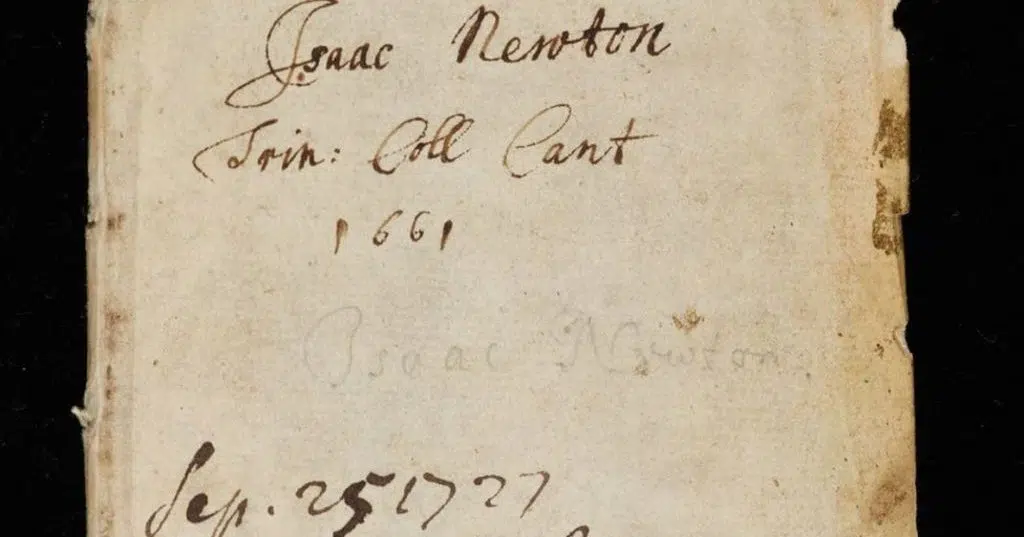 Isaac Newton
Trin: Coll Cant
1661
Isaac Newton.
Sep. 25 1727